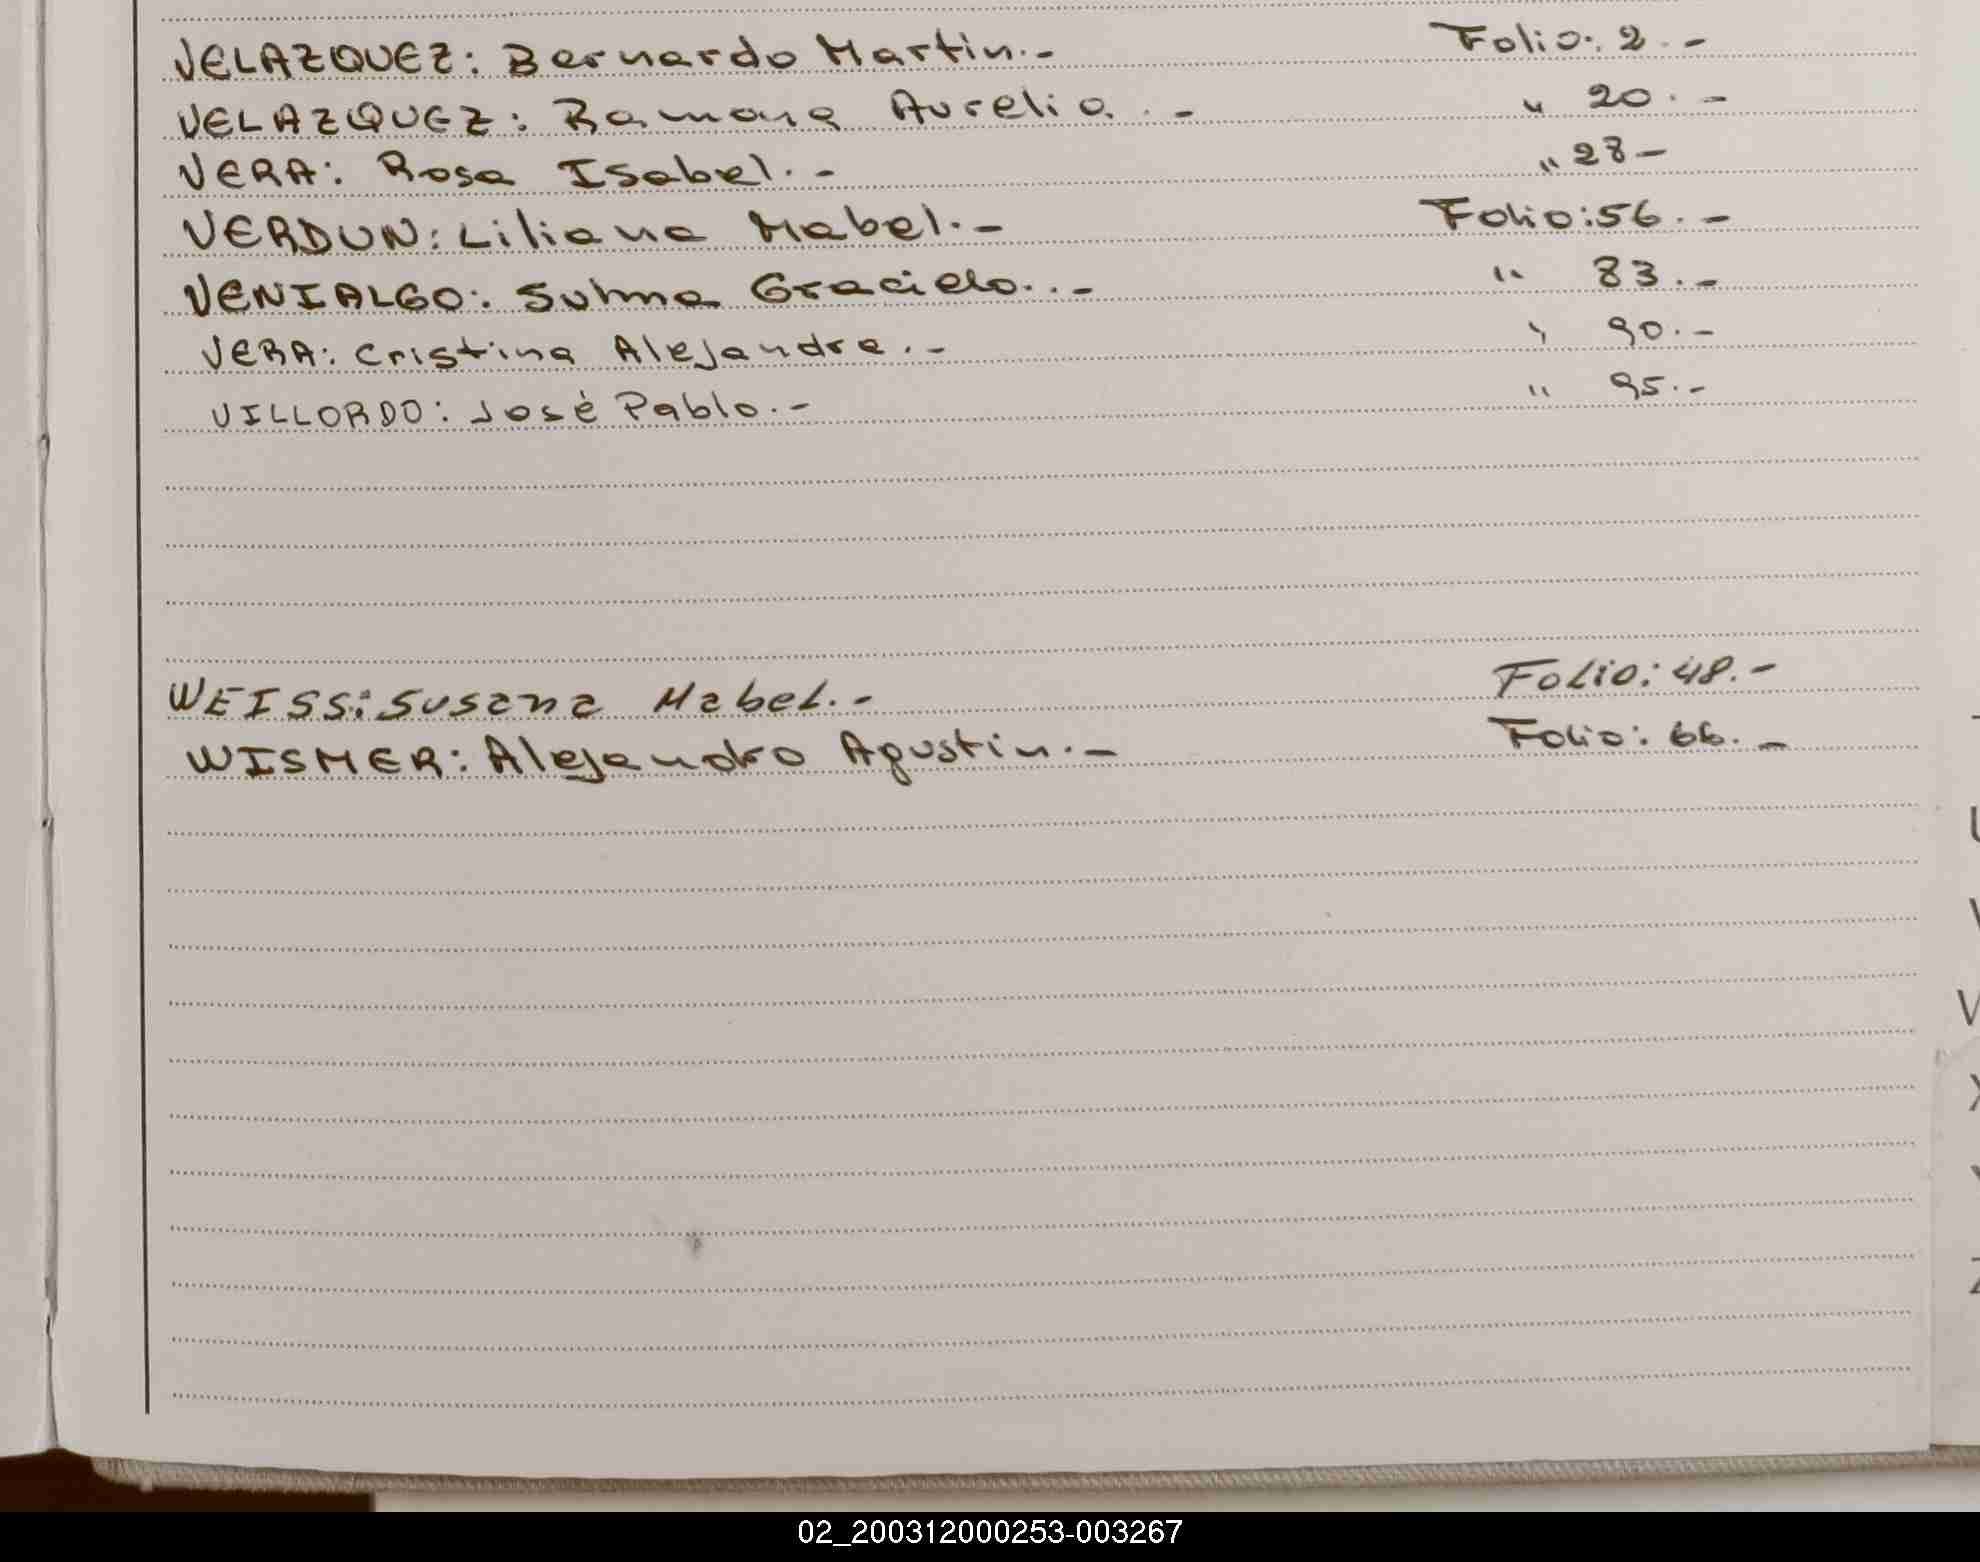 VELAZQUEZ: Bernardo Martin.- Folio: 2.-
VELAZQUEZ: Ramona Aurelia.- " 20.-
VERA: Rosa Isabel.- " 28-
VERDUN: Liliana Mabel.- Folio: 56.-
VENIALGO: Sulma Graciela..- " 83.-
VERA: Cristina Alejandra.- " 90.-
VILLORDO: José Pablo.- " 95.-
WEISS: Susana Mabel.- Folio: 48.-
WISMER: Alejandro Agustin.- Folio: 66.-
02_200312000253-003267